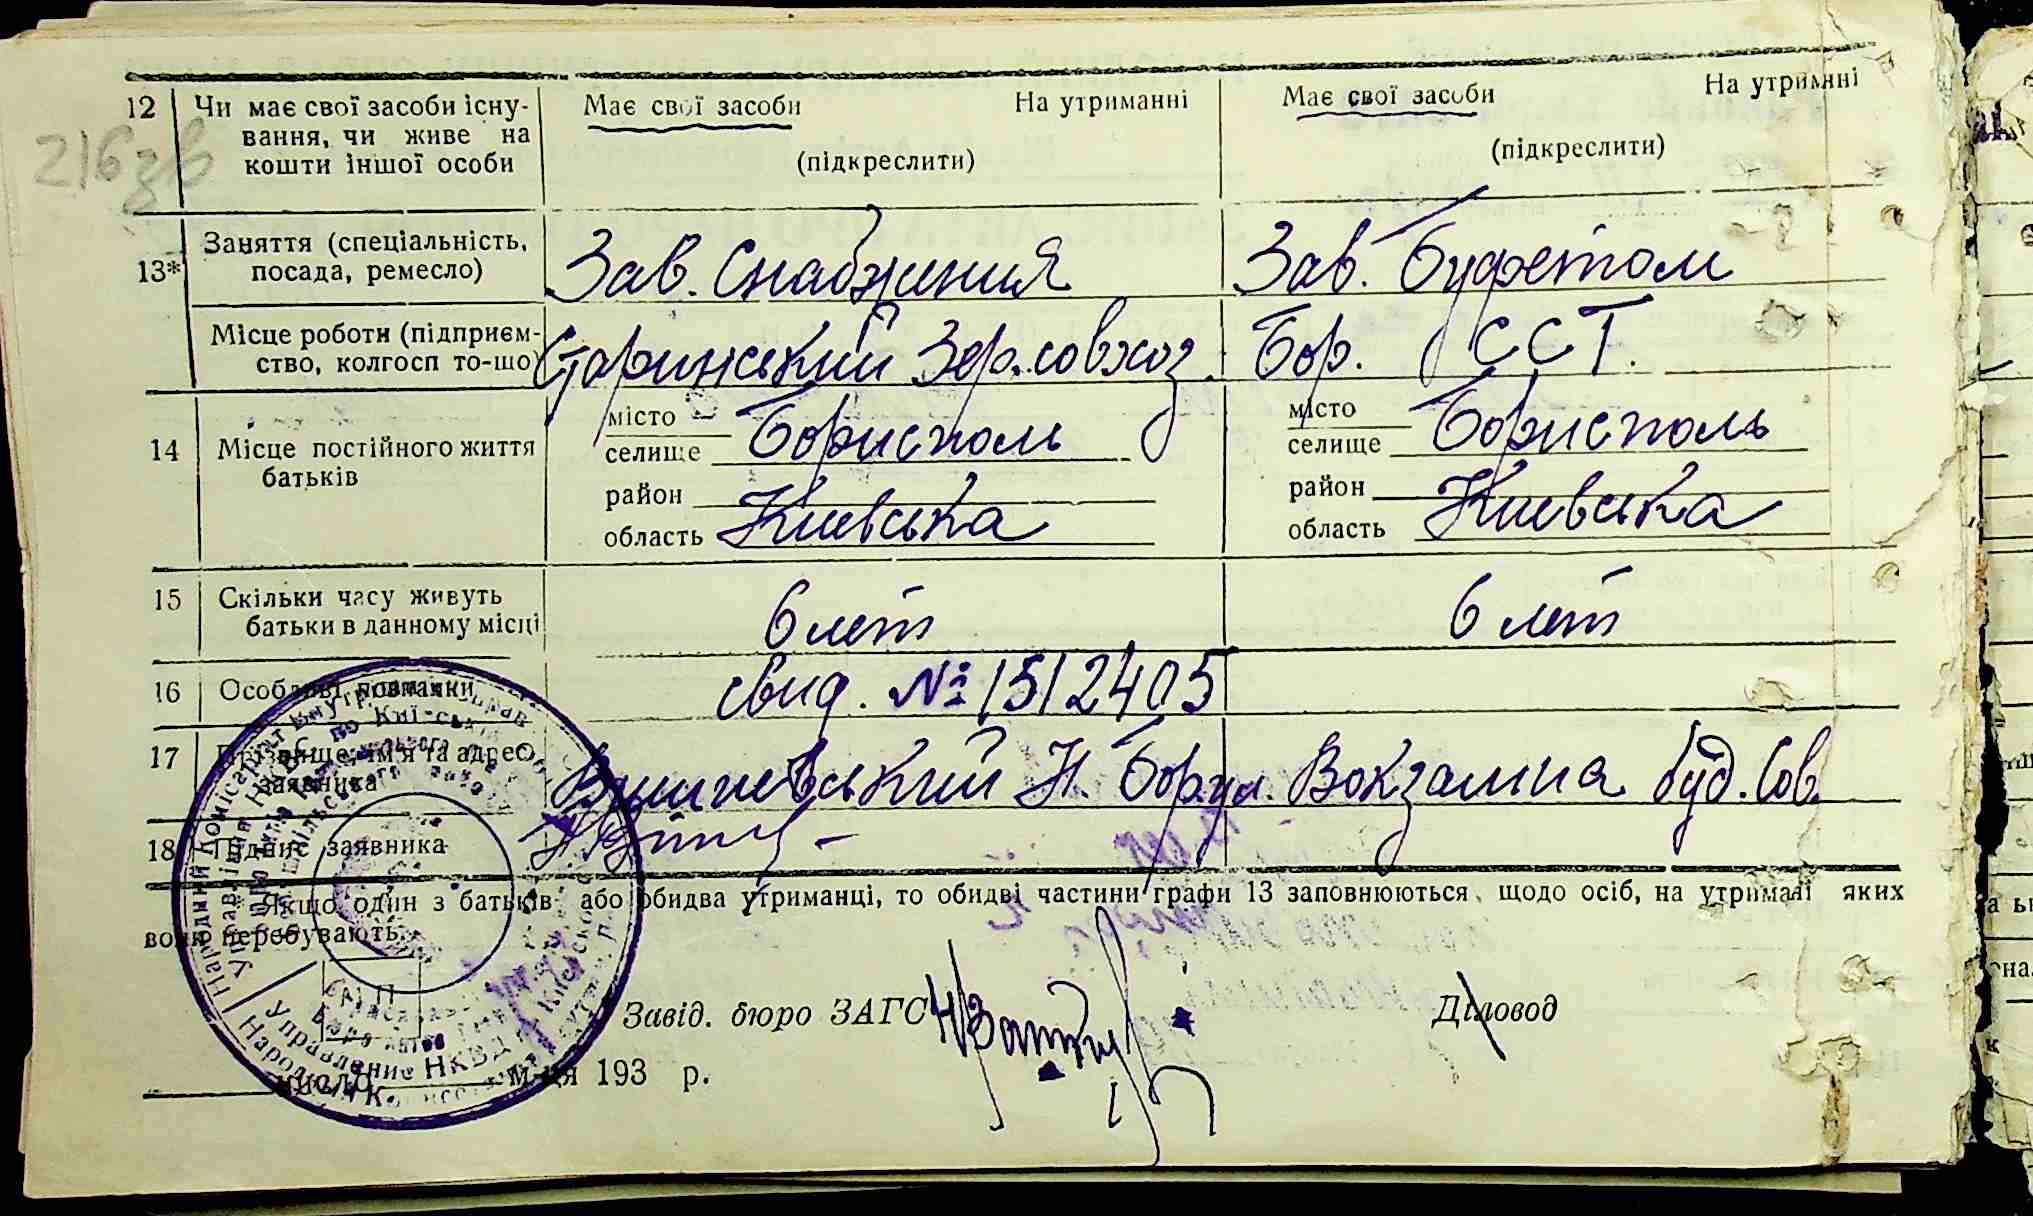 216 зв
12 Чи має свої засоби існу- Має свої засоби На утриманні Має свої засоби На утриманні
вання, чи живе на
кошти іншої особи (підкреслити) (підкреслити)
13* Заняття (спеціальність, Зав. Снабжения Зав. Буфетом
посада, ремесло)
Місце роботи (підприєм- Старинський Зер.совхоз Бор. ССТ.
ство, колгосп то-що)
14 Місце постійного життя місто Борисполь місто Борисполь
батьків селище селище
район район
область Киевська область Киевська
15 Скільки часу живуть 6 лет 6 лет
батьки в данному місці
16 Особливі познаки свид. № 1512405
17 Прізвище, ім'я та адрес Вишневський Н. Бор. ул. Вокзальна буд. Сов.
заявника
18 Підпис заявника
Якщо один з батьків або обидва утриманці, то обидві частини графи 13 заповнюються, щодо осіб, на утримані яких
вони перебувають.
Завід. бюро ЗАГС Діловод
число м-ця 193 р.
Народний Комісаріат Внутр.
Управління НКВД